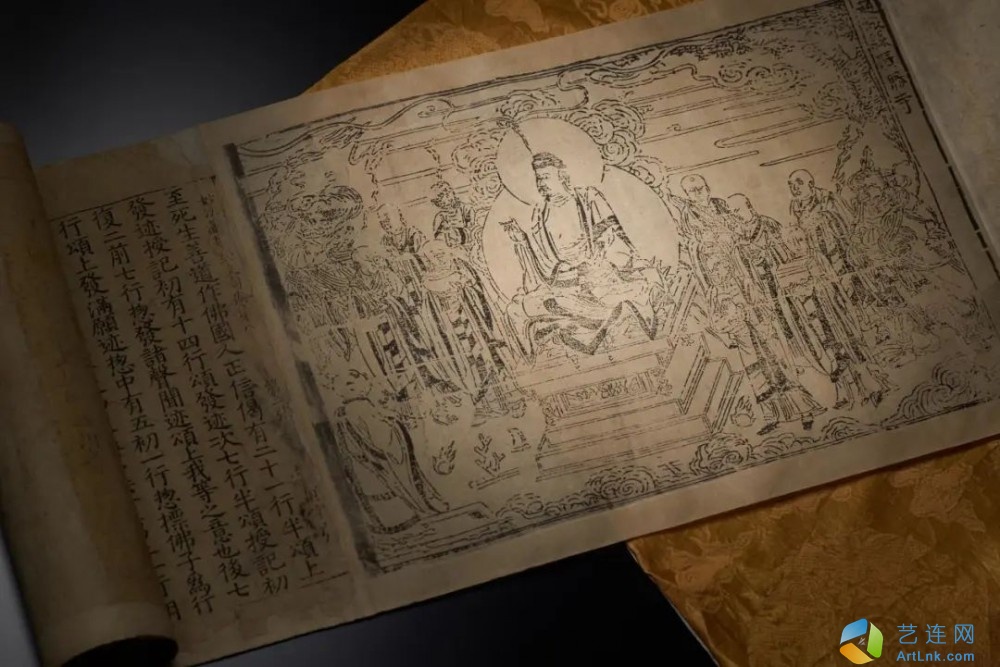 至死生善道作佛國人正信偈有二十一行半頌上
發迹授記初有十四行頌發迹次七行半頌授記初
復二前七行揔發諸聲聞迹頌上我等之意也後七
行頌上發滿願迹揔中有五初一行揔標佛子爲行
艺连网
ArtLnk.com